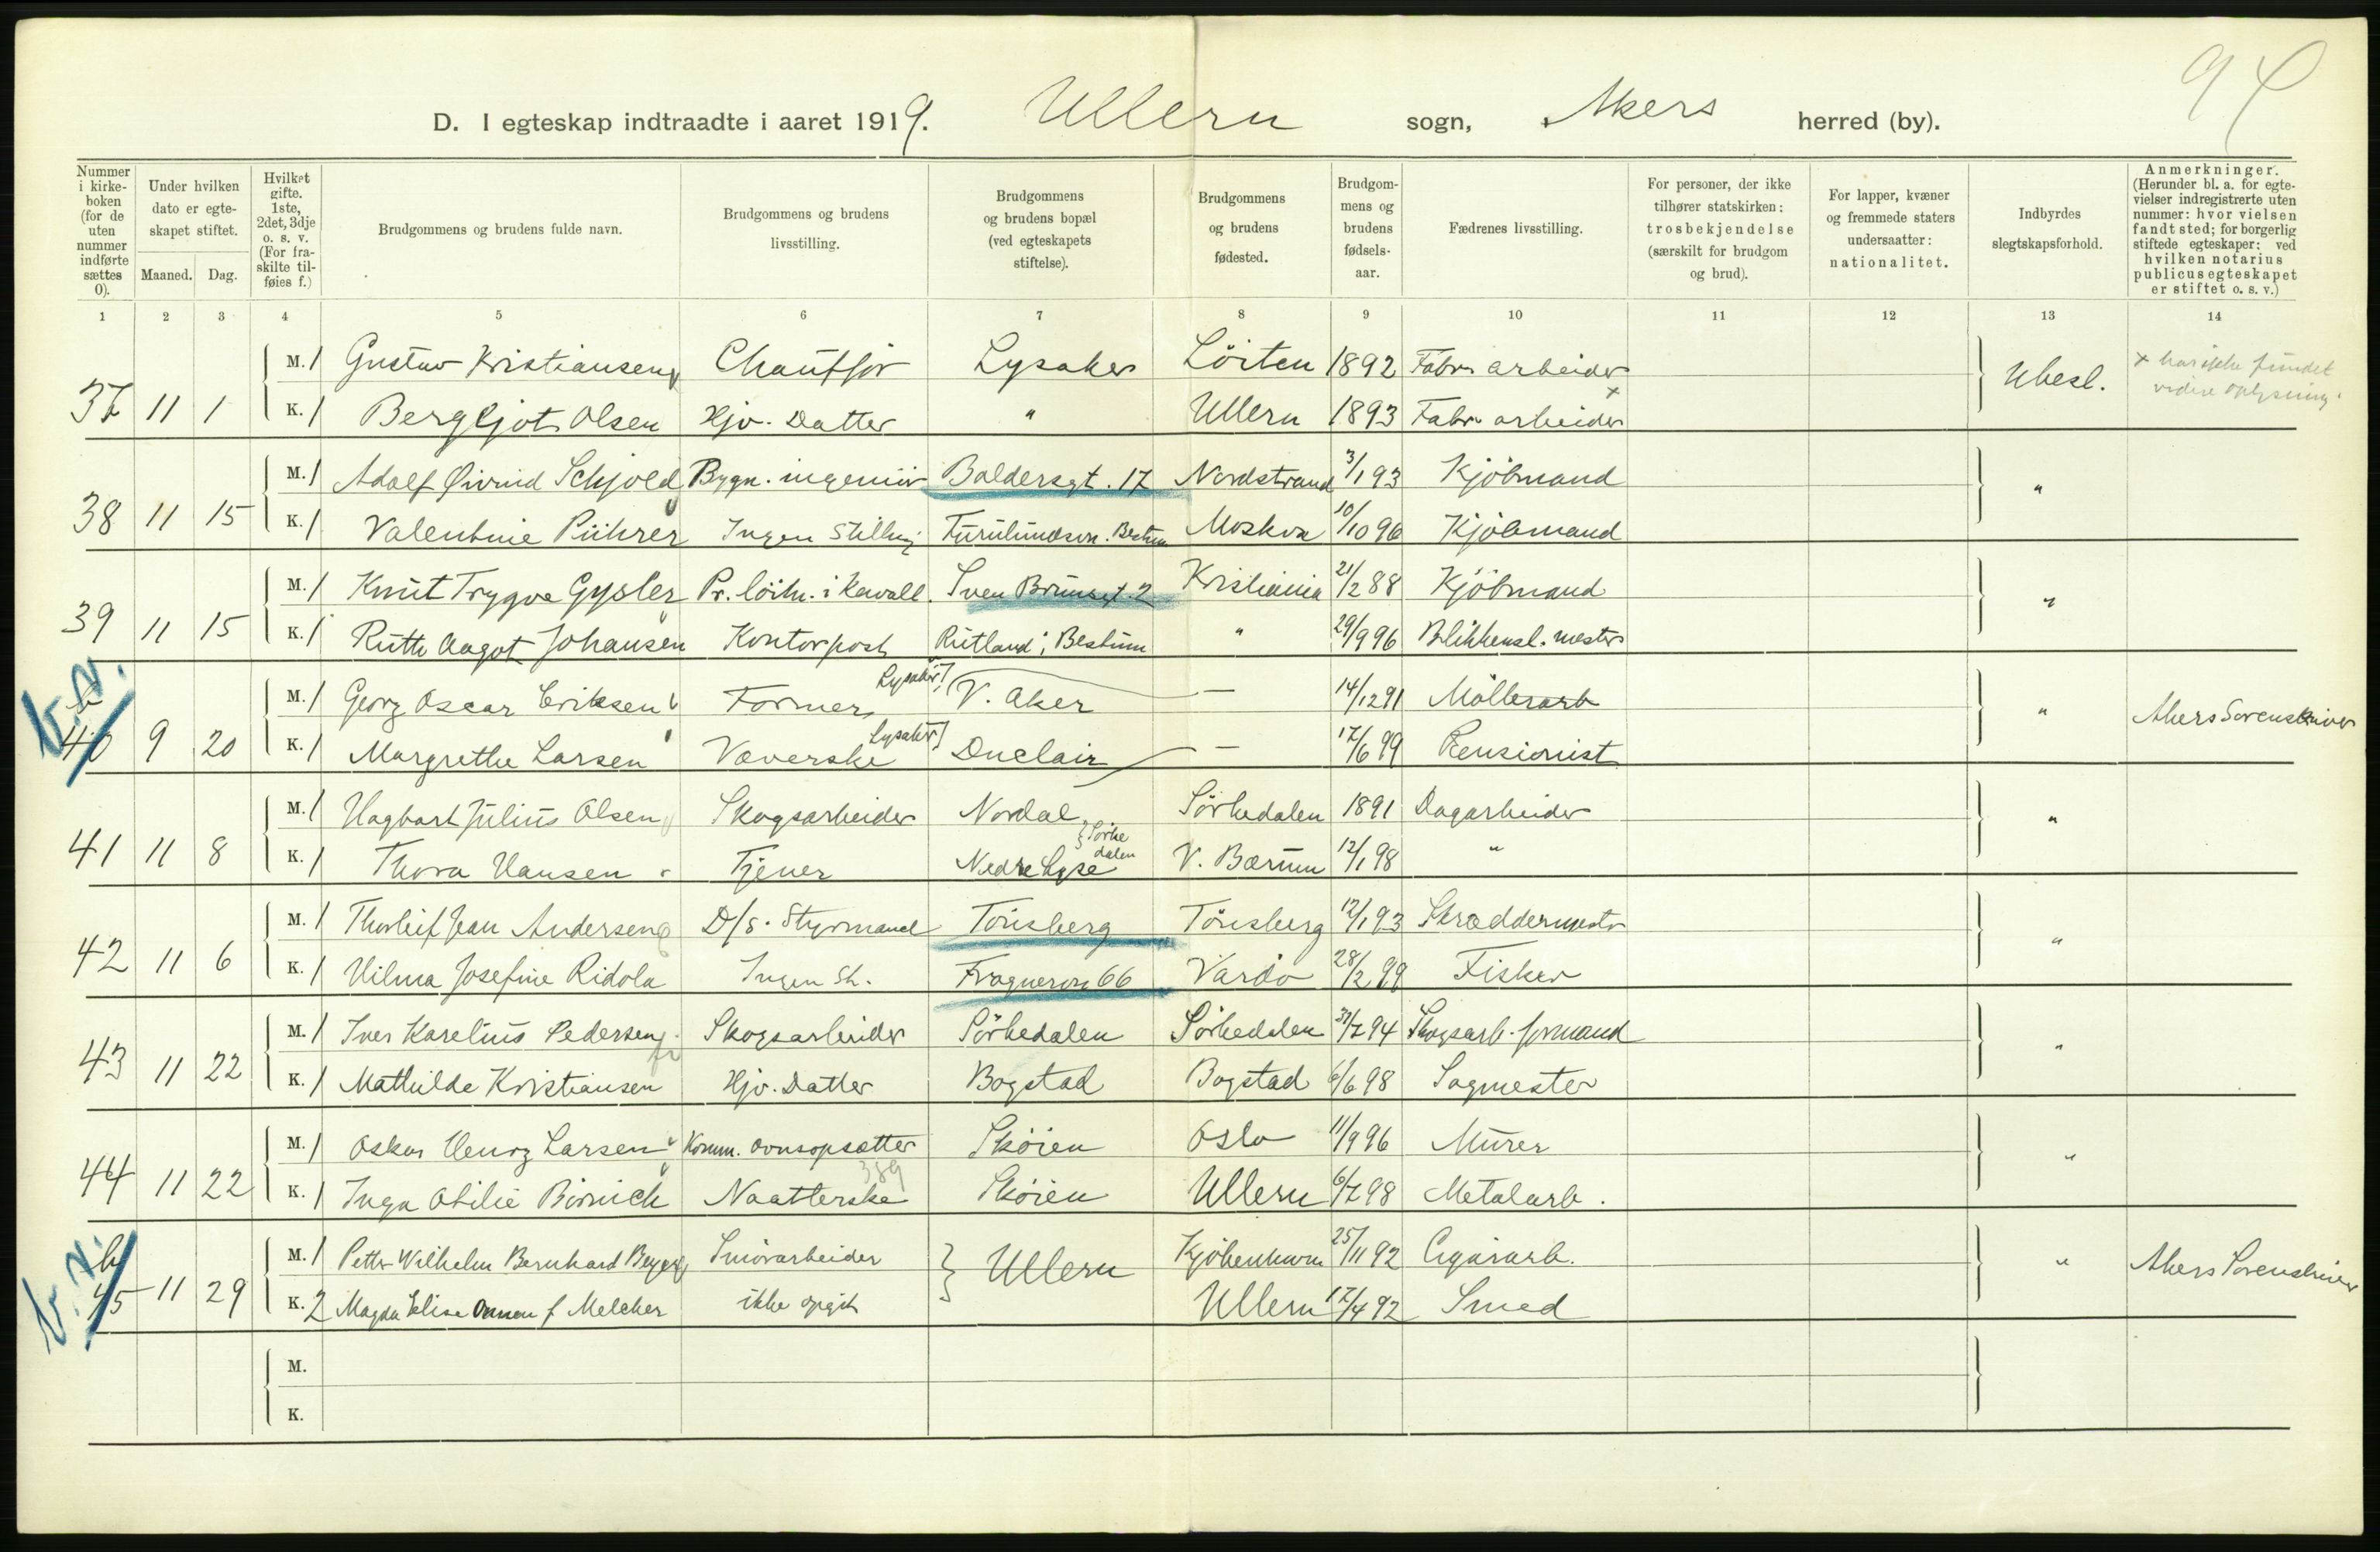 94
D. I egteskap indtraadte i aaret 1919. Ullern sogn, Akers herred (by).
Nummer i kirke-boken (for de uten nummer indførte sættes 0).
Under hvilken dato er egte-skapet stiftet.
Maaned. Dag.
Hvilket gifte. 1ste, 2det, 3dje o. s. v. (For fra-skilte til-føies f.)
Brudgommens og brudens fulde navn.
Brudgommens og brudens livsstilling.
Brudgommens og brudens bopæl (ved egteskapets stiftelse).
Brudgommens og brudens fødested.
Brudgom-mens og brudens fødsels-aar.
Fædrenes livsstilling.
For personer, der ikke tilhører statskirken: trosbekjendelse (særskilt for brudgom og brud).
For lapper, kvæner og fremmede staters undersaatter: nationalitet.
Indbyrdes slegtskapsforhold.
Anmerkninger. (Herunder bl. a. for egte-vielser indregistrerte uten nummer: hvor vielsen fandt sted; for borgerlig stiftede egteskaper: ved hvilken notarius publicus egteskapet er stiftet o. s. v.)
1 2 3 4 5 6 7 8 9 10 11 12 13 14
37 11 1 M. 1 Gustav Kristiansen Chauffør Lysaker Löiten 1892 Fabr. arbeider Ubesl. x har ikke fundet videre oplysning.
K. 1 Bergljot Olsen Hjv. Datter " Ullern 1893 Fabr. arbeider x
38 11 15 M. 1 Adolf Øivind Schjold Bygn. ingeniör Baldersgt. 17 Nordstrand 3/1 93 Kjöbmand "
K. 1 Valentine Pührer Ingen Stilling Furulundsvn. Bestum Moskva 10/10 96 Kjöbmand
39 11 15 M. 1 Knut Trygve Gysler Pr. löitn. i Kavall. Sven Brunsgt. 2 Kristiania 21/2 88 Kjöbmand "
K. 1 Ruth Aagot Johansen Kontorpost Rutland, Bestum " 29/9 96 Blikkensl. mester
b. v.
40 9 20 M. 1 Georg Oscar Eriksen Former Lysaker V. Aker — 14/12 91 Möllerarb " Akers Sorenskriver
K. 1 Margrethe Larsen Væverske Lysaker Duclair — 17/6 99 Pensionist
41 11 8 M. 1 Hagbart Julius Olsen Skogsarbeider Nordal Sörkedalen 1891 Dagarbeider "
K. 1 Thora Hansen Tjener Nedre Lyse } Sörkedalen V. Bærum 12/1 98 "
42 11 6 M. 1 Thorleif Jean Andersen D/S. Styrmand Tönsberg Tönsberg 12/1 93 Skræddermester "
K. 1 Hilma Josefine Ridola Ingen St. Frognervn 66 Vardö 28/2 99 Fisker
43 11 22 M. 1 Iver Karelius Pedersen Skogsarbeider Sörkedalen Sörkedalen 31/7 94 Skogsarb. formand "
K. 1 Mathilde Kristiansen Hjv. Datter Bogstad Bogstad 6/6 98 Sagmester
44 11 22 M. 1 Oskar Henry Larsen Komm. ovnsopsætter Sköien Oslo 11/9 96 Murer "
389
K. 1 Inga Otilie Börnich Naatlerske Sköien Ullern 6/7 98 Metalarb.
b. v.
45 11 29 M. 1 Petter Wilhelm Bernhard Smörarbeider } Ullern Kjöbenhavn 25/11 92 Cigararb. " Akers Sorenskriver
K. 2 Magda Elise Onsum f Melcher ikke opgit Ullern 17/4 92 Smed
M.
K.